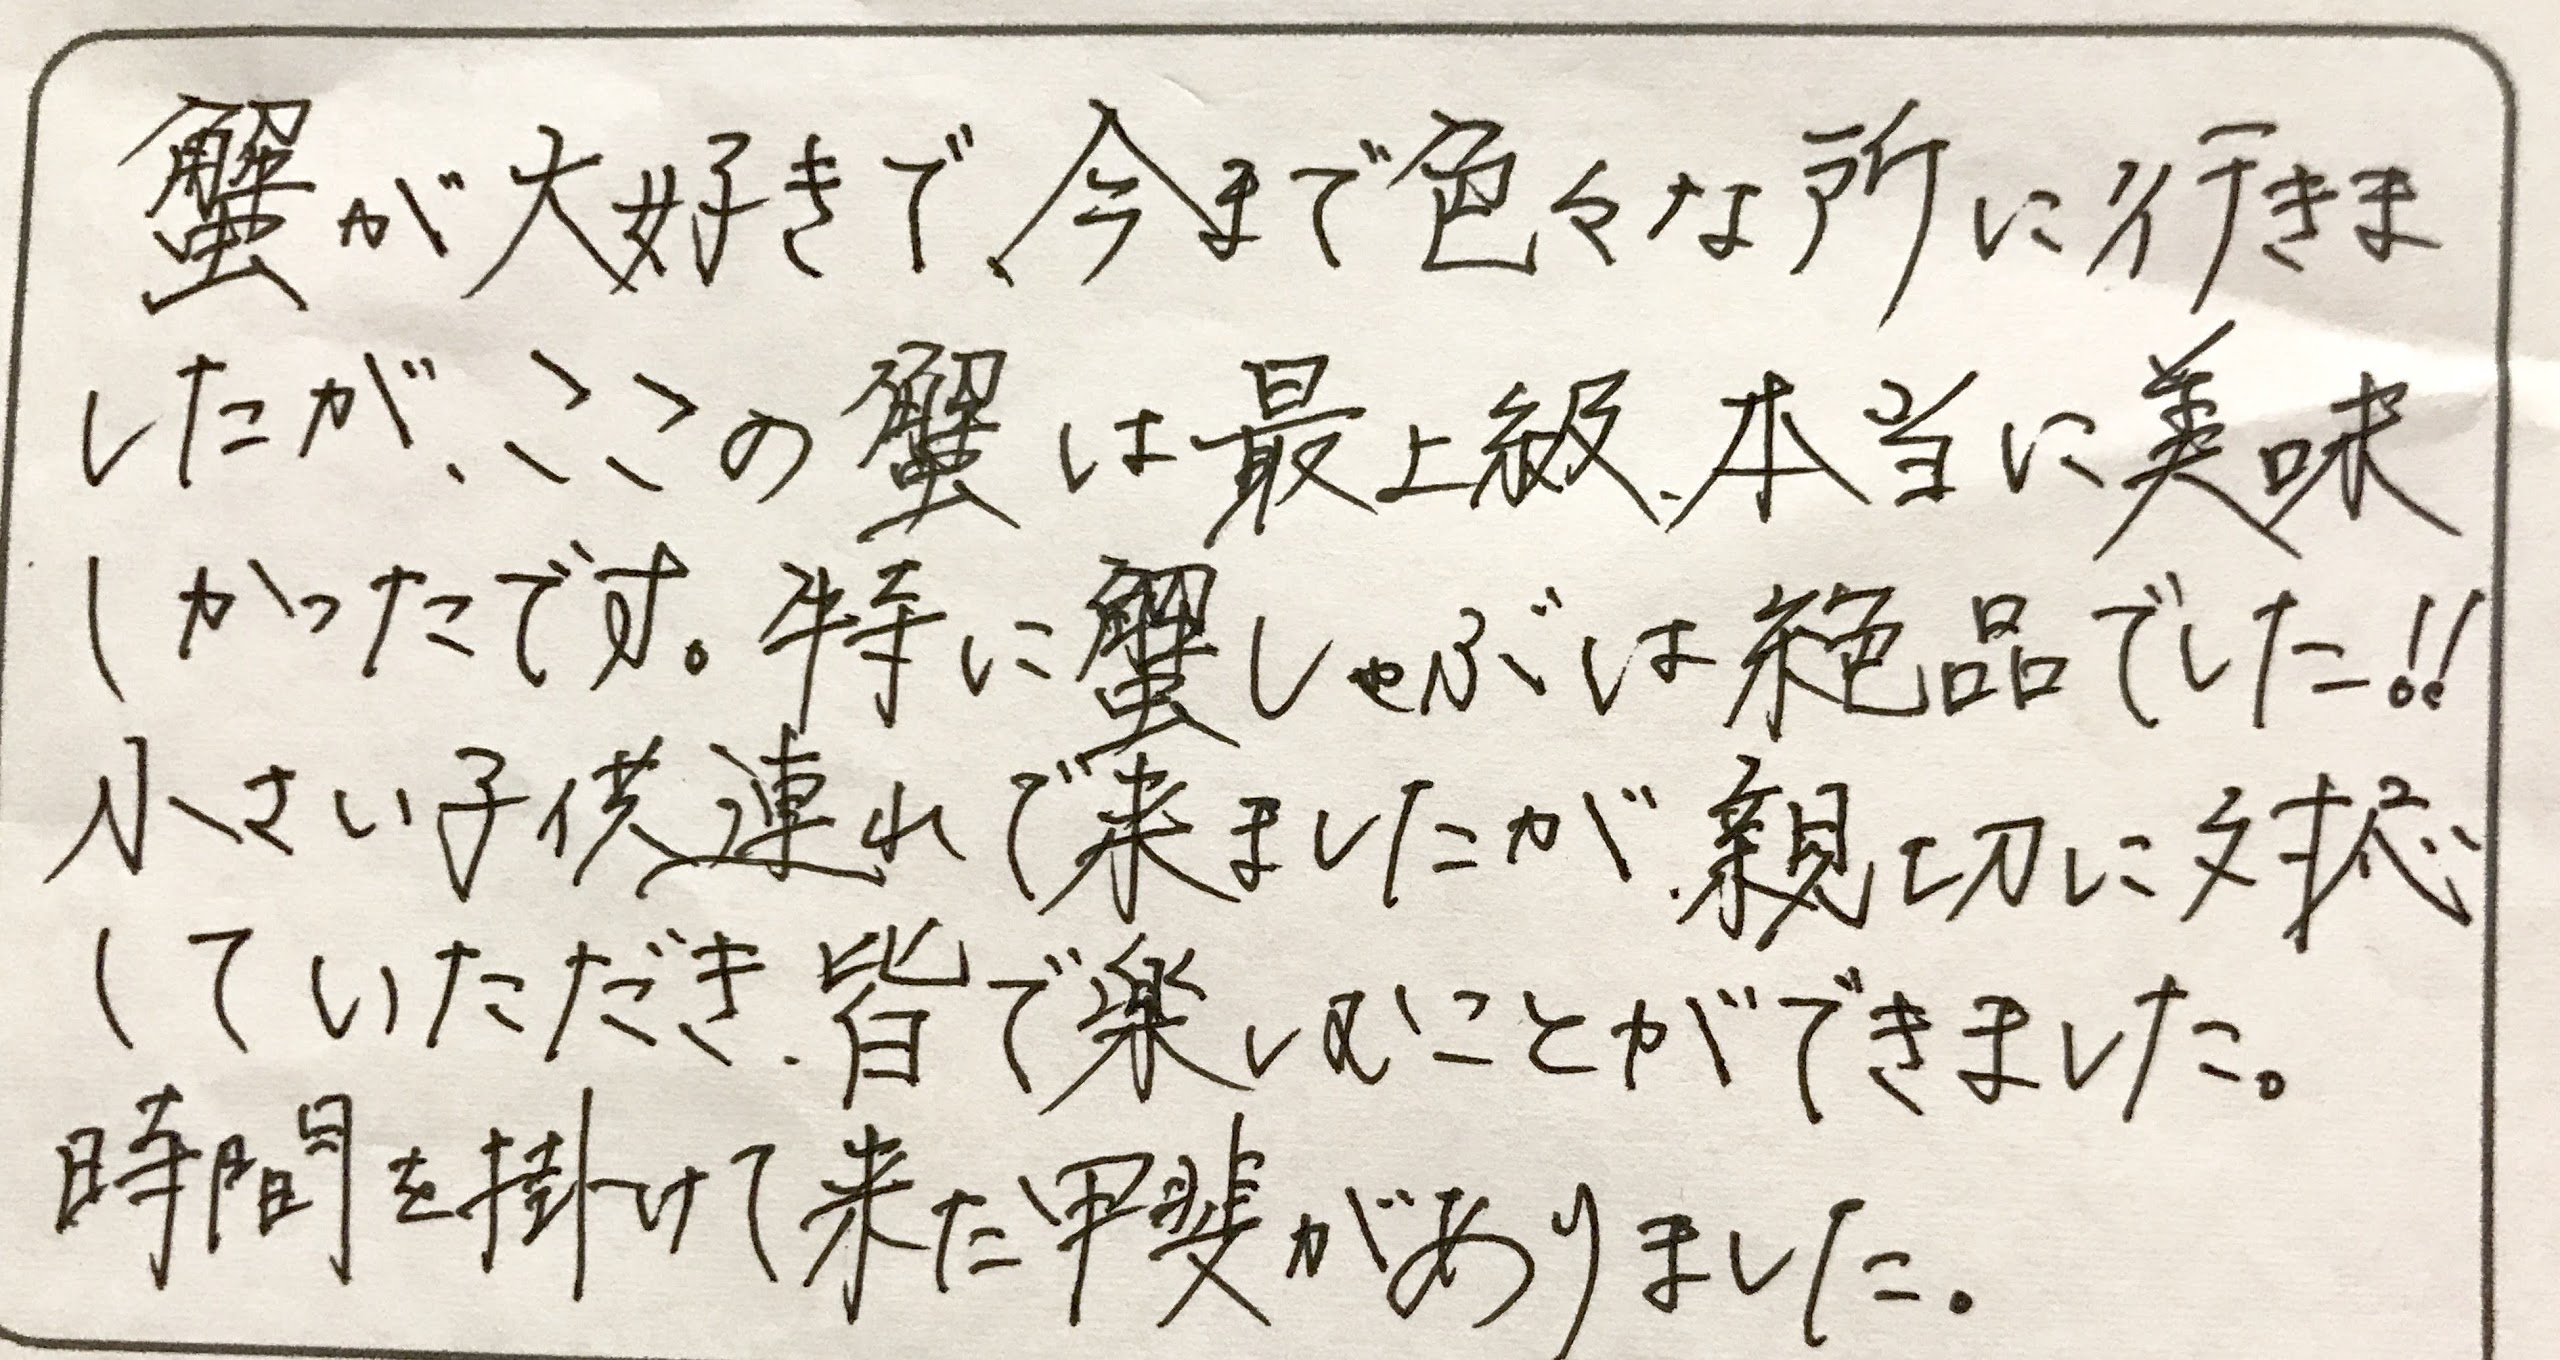 蟹が大好きで、今まで色々な所に行きま
したが、ここの蟹は最上級、本当に美味
しかったです。特に蟹しゃぶは絶品でした!!
小さい子供連れで来ましたが、親切に対応
していただき、皆で楽しむことができました。
時間を掛けて来た甲斐がありました。